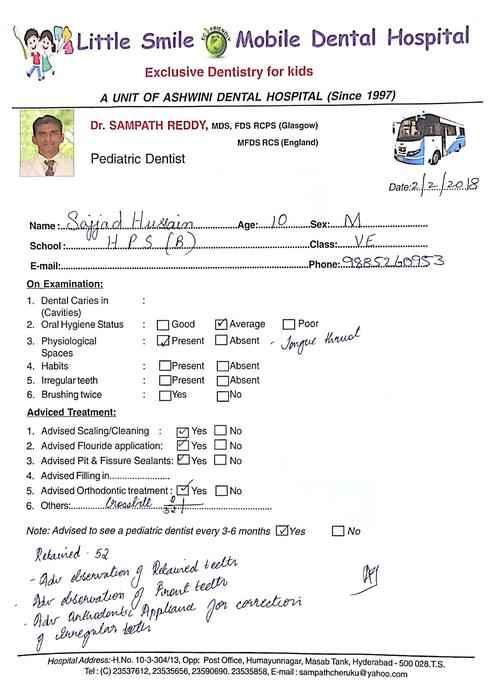 Little Smile Mobile Dental Hospital
Exclusive Dentistry for kids
A UNIT OF ASHWINI DENTAL HOSPITAL (Since 1997)
Dr. SAMPATH REDDY, MDS, FDS RCPS (Glasgow)
MFDS RCS (England)
Pediatric Dentist
Date: 2/2/2018
Name: Sajjad Hussain Age: 10 Sex: M
School: H P S (B) Class: VE
E-mail: Phone: 9885260953
On Examination:
1. Dental Caries in :
(Cavities)
2. Oral Hygiene Status : Good Average Poor
3. Physiological : Present Absent - Tongue thrust
Spaces
4. Habits : Present Absent
5. Irregular teeth : Present Absent
6. Brushing twice : Yes No
Adviced Treatment:
1. Advised Scaling/Cleaning : Yes No
2. Advised Flouride application: Yes No
3. Advised Pit & Fissure Sealants: Yes No
4. Advised Filling in
5. Advised Orthodontic treatment : Yes No
6. Others: Crossbite 2 52
Note: Advised to see a pediatric dentist every 3-6 months Yes No
Retained - 52
- Adv observation of Retained teeth
- Adv observation of Front teeth
- Adv Orthodontic Appliance for correction
of Irregular teeth
Hospital Address:-H.No. 10-3-304/13, Opp: Post Office, Humayunnagar, Masab Tank, Hyderabad - 500 028.T.S.
Tel : (C) 23537612, 23535656, 23590690. 23535858, E-mail : sampathcheruku@yahoo.com